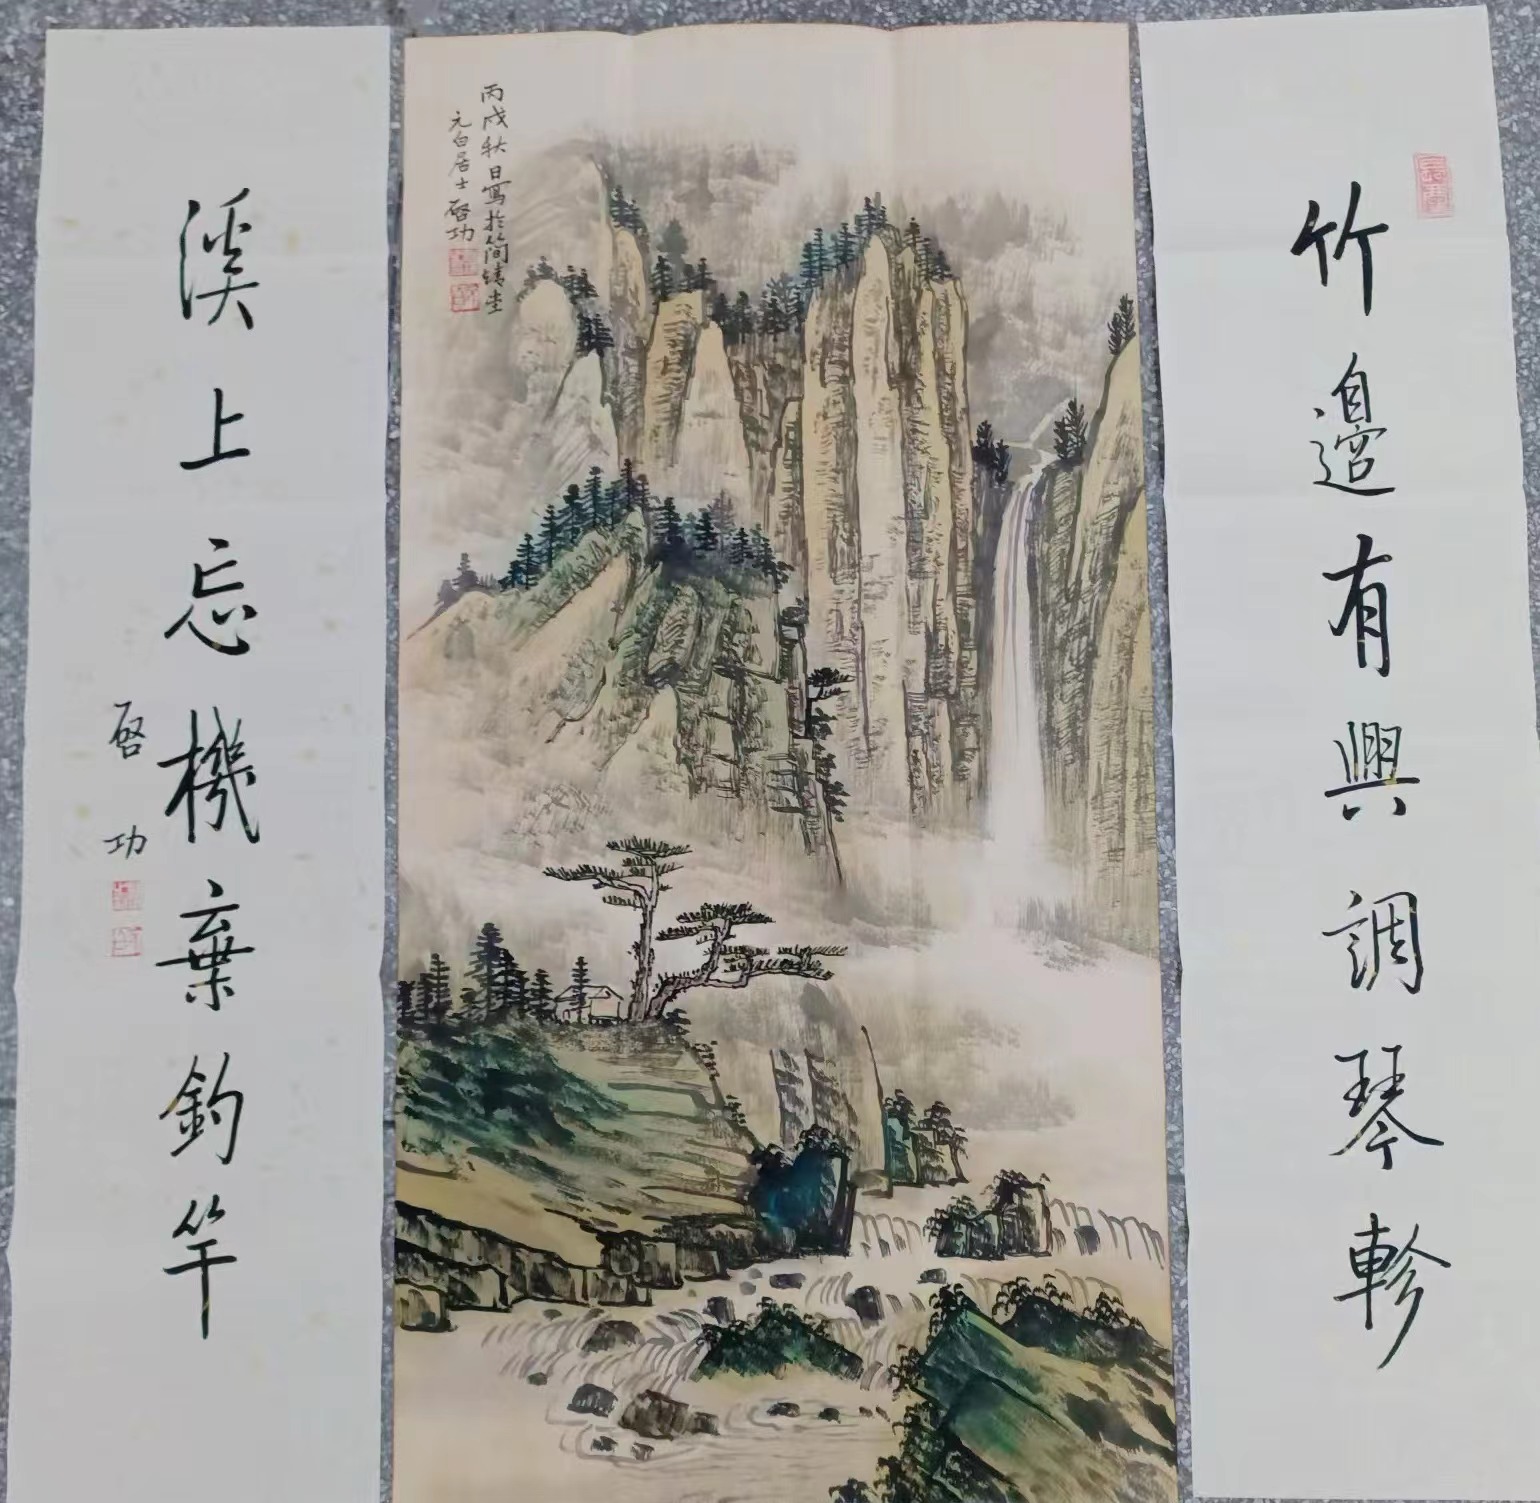 竹邊有興調琴軫
丙戌秋日寫於簡靖堂
元白居士啓功
溪上忘機棄釣竿
啓功